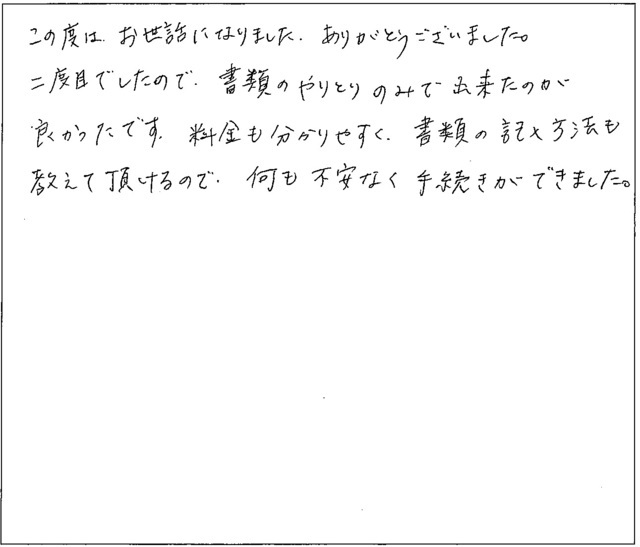 この度は、お世話になりました、ありがとうございました。
二度目でしたので、書類のやりとりのみで出来たのが
良かったです。料金も分かりやすく、書類の記入方法も
教えて頂けるので、何も不安なく手続きができました。